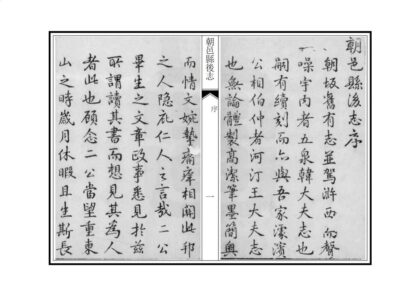 朝邑縣後志序
朝坂舊有志並駕滸西而聲
噪宇內者五泉韓大夫志也
嗣有續刻而亦與吾家濛濱
公相伯仲者河汀王大夫志
也無論體製高潔筆墨簡奧
朝邑縣後志
序
一
而情文婉摯痛癢相關此邦
之人仁人之言哉二公
畢生之文章政事悉見於茲
所謂讀其書而想見其為人
者此也顧念二公當望重東
山之時歲月休暇且生斯長